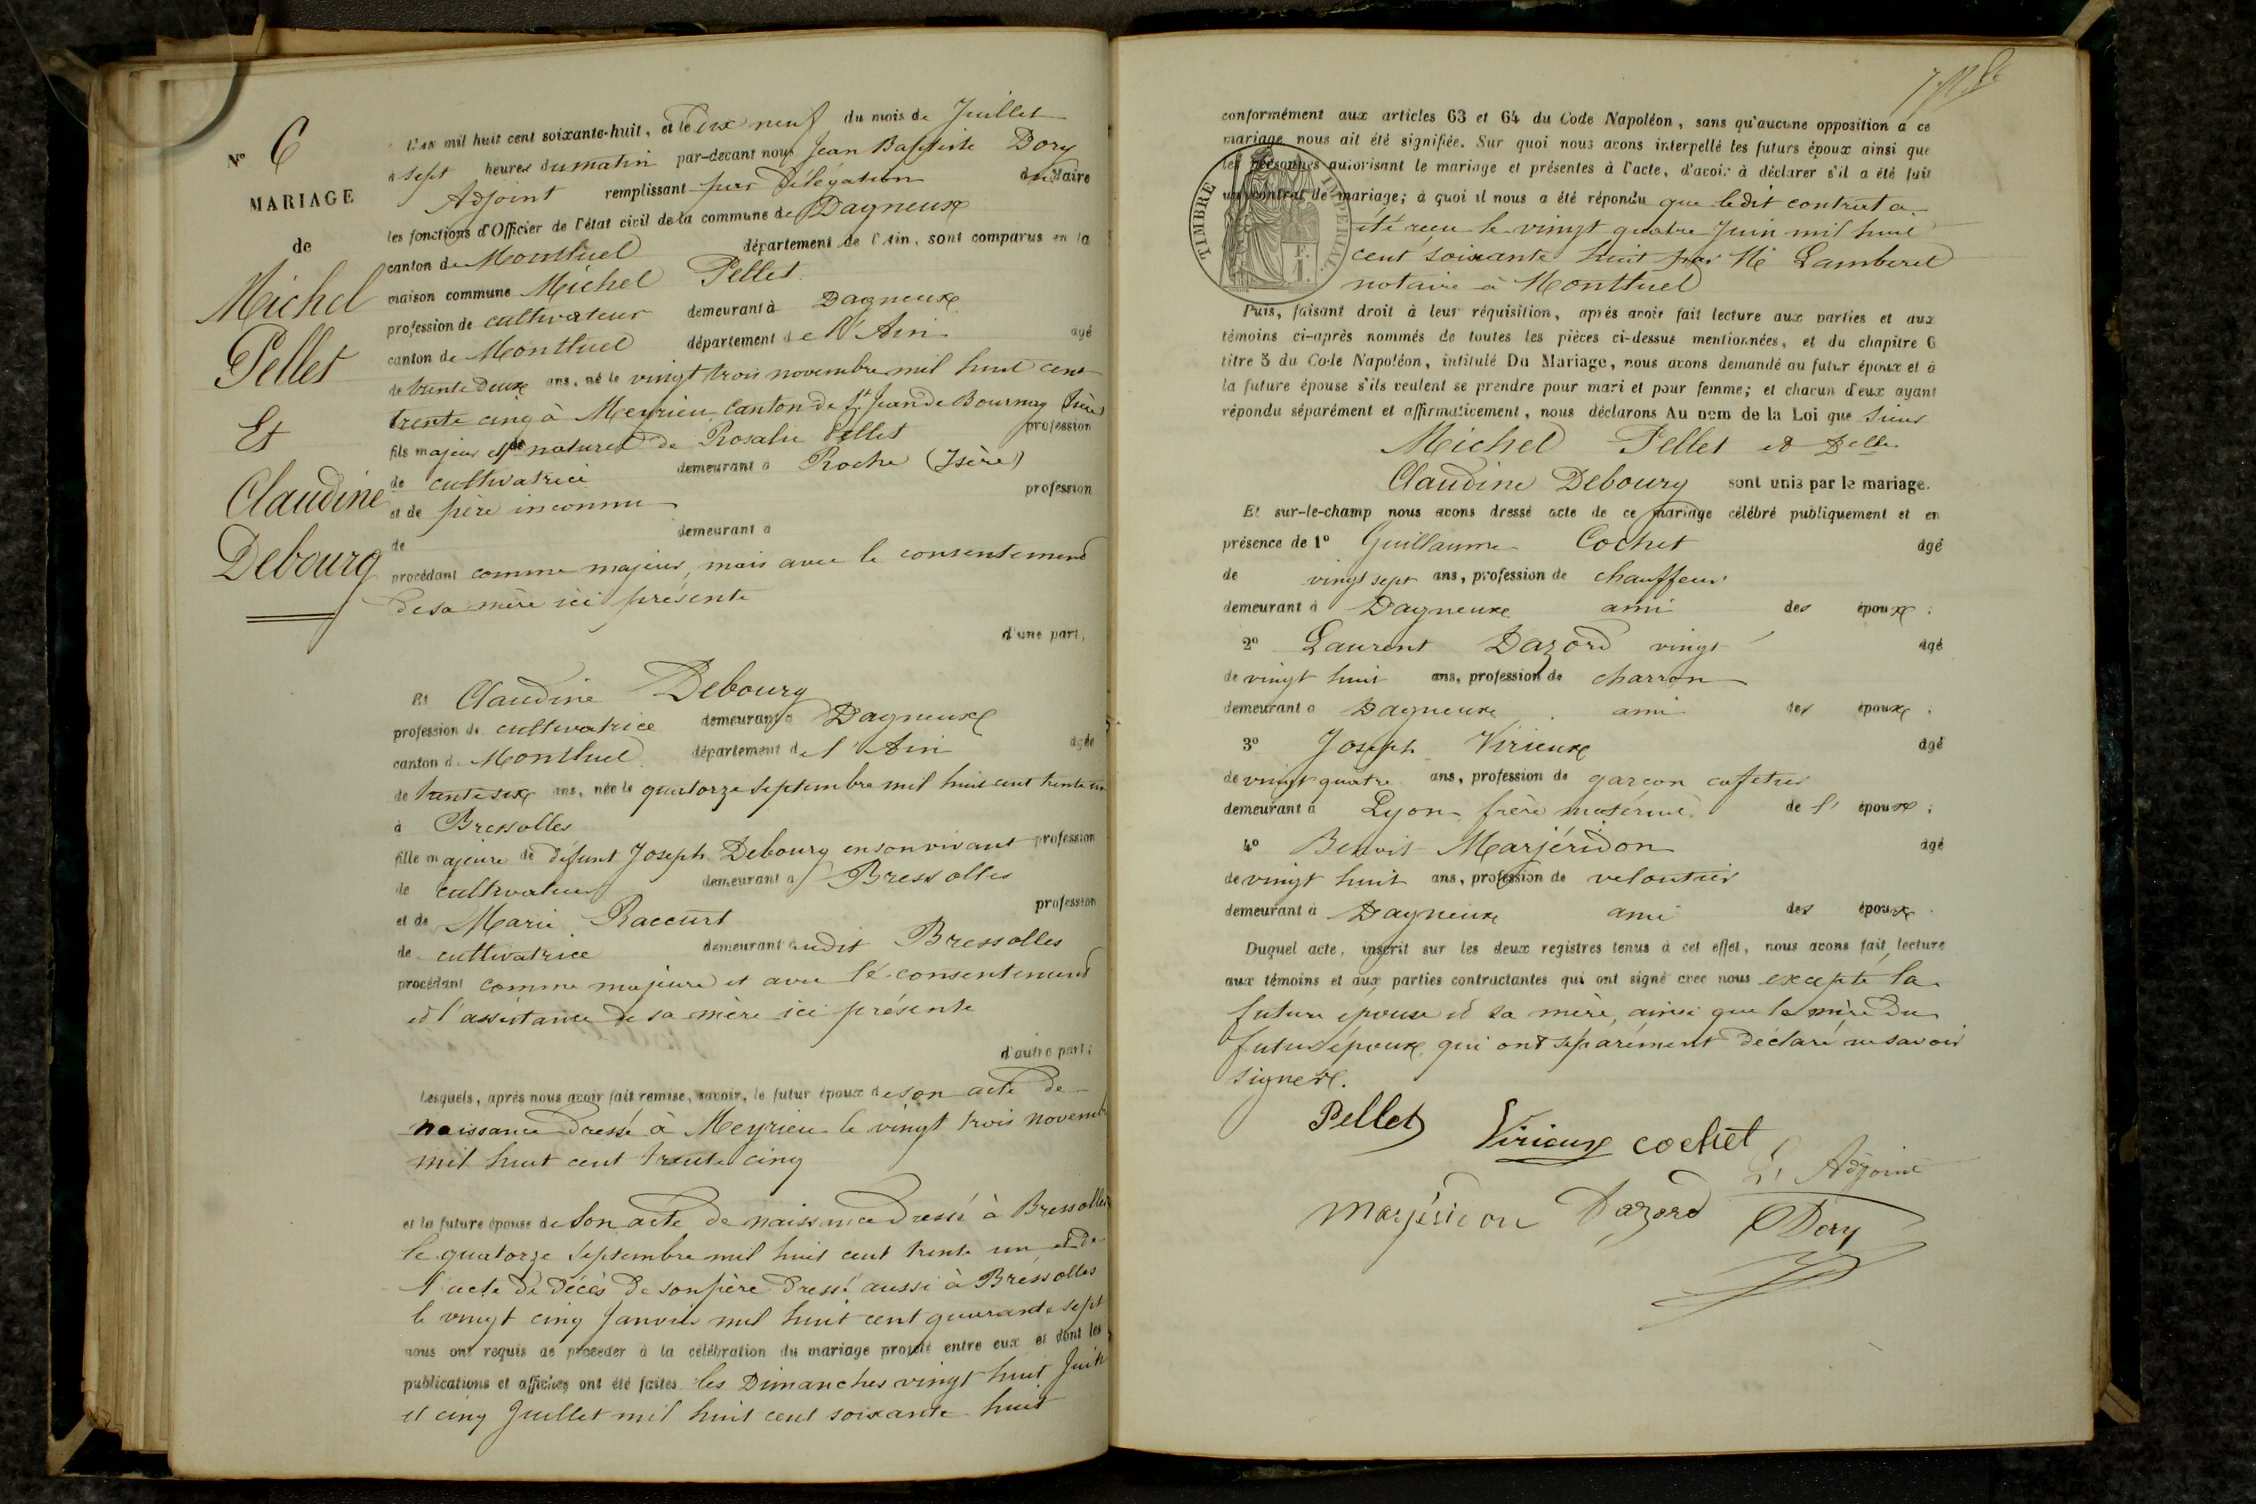 N° 6
MARIAGE
de
Michel
Pellet
Et
Claudine
Debourg
L'an mil huit cent soixante-huit, et le dix neuf du mois de Juillet
à sept heures du matin par-devant nous Jean Baptiste Dory
Adjoint remplissant par délégation du Maire
les fonctions d'Officier de l'état civil de la commune de Dagneux
canton de Montluel département de l'Ain, sont comparus en la
maison commune Michel Pellet
profession de cultivateur demeurant à Dagneux
canton de Montluel département de l'Ain agé
de trente deux ans, né le vingt trois novembre mil huit cent
trente cinq à Meyrieu canton de St Jean de Bournay (Isère)
fils majeur et naturel de Rosalie Pellet profession
de cultivatrice demeurant à Roche (Isère)
et de père inconnu profession
de demeurant à
procédant comme majeur, mais avec le consentement
de sa mère ici présente
d'une part,
Et Claudine Debourg
profession de cultivatrice demeurant à Dagneux
canton de Montluel département de l'Ain agée
de trente six ans, née le quatorze septembre mil huit cent trente un
à Bressolles
fille majeure de défunt Joseph Debourg en son vivant profession
de cultivateur demeurant à Bressolles
et de Marie Raccurt profession
de cultivatrice demeurant audit Bressolles
procédant comme majeure et avec le consentement
et l'assistance de sa mère ici présente
d'autre part;
Lesquels, après nous avoir fait remise, savoir, le futur époux de son acte de
naissance dressé à Meyrieu le vingt trois novembre
mil huit cent trente cinq
et la future épouse de son acte de naissance dressé à Bressolles
le quatorze septembre mil huit cent trente un et de
l'acte de décès de son père dressé aussi à Bressolles
le vingt cinq Janvier mil huit cent quarante sept
nous ont requis de procéder à la célébration du mariage projeté entre eux et dont les
publications et affiches ont été faites les Dimanches vingt huit Juin
et cinq Juillet mil huit cent soixante huit
conformément aux articles 63 et 64 du Code Napoléon, sans qu'aucune opposition à ce
mariage nous ait été signifiée. Sur quoi nous avons interpellé les futurs époux ainsi que
les personnes autorisant le mariage et présentes à l'acte, d'avoir à déclarer s'il a été fait
un contrat de mariage; à quoi il nous a été répondu que ledit contrat a
été reçu le vingt quatre Juin mil huit
cent soixante huit par Me Lamberet
notaire à Montluel
TIMBRE IMPERIAL
Puis, faisant droit à leur réquisition, après avoir fait lecture aux parties et aux
témoins ci-après nommés de toutes les pièces ci-dessus mentionnées, et du chapitre 6
titre 5 du Code Napoléon, intitulé Du Mariage, nous avons demandé au futur époux et à
la future épouse s'ils veulent se prendre pour mari et pour femme; et chacun d'eux ayant
répondu séparément et affirmativement, nous déclarons Au nom de la Loi que Sieur
Michel Pellet et Delle
Claudine Debourg sont unis par le mariage.
Et sur-le-champ nous avons dressé acte de ce mariage célébré publiquement et en
présence de 1° Guillaume Cochet agé
de vingt sept ans, profession de chauffeur
demeurant à Dagneux ami des époux;
2° Laurent Dazord vingt agé
de vingt huit ans, profession de charron
demeurant à Dagneux ami des époux;
3° Joseph Virieux agé
de vingt quatre ans, profession de garçon cafetier
demeurant à Lyon, frère maternel de l' époux;
4° Benoit Marjéridon agé
de vingt huit ans, profession de veloutier
demeurant à Dagneux ami des époux.
Duquel acte, inscrit sur les deux registres tenus à cet effet, nous avons fait lecture
aux témoins et aux parties contractantes qui ont signé avec nous excepté la
future épouse et sa mère, ainsi que la mère du
futur époux qui ont séparément déclaré ne savoir
signer.
Pellet Virieux cochet
L'Adjoint
Marjéridon Dazord Dory